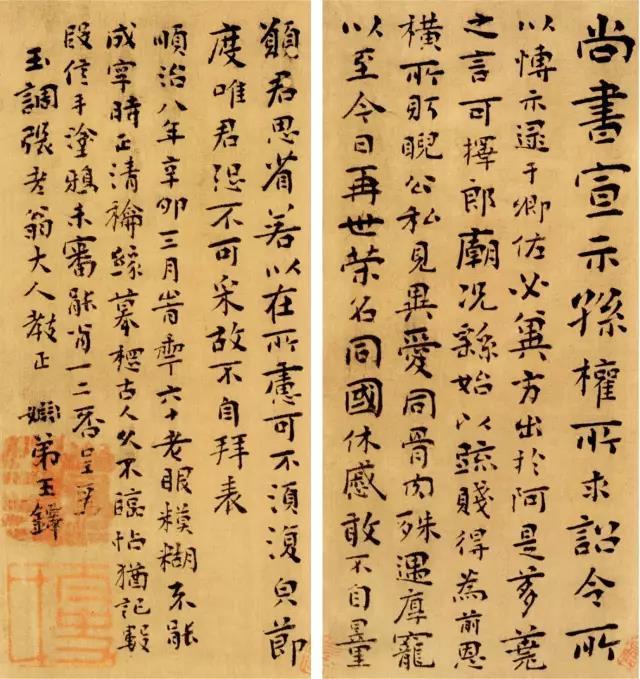 尚書宣示孫權所求詔令所
以博示逮于卿佐必冀方出於阿是芻蕘
之言可擇郎廟況繇始以疏賤得為前恩
橫所盻睨公私見異愛同骨肉殊遇厚寵
以至今日再世榮名同國休慼敢不自量
願君思省若以在所慮可不須復皃節
度唯君恕不可采故不自拜表
順治八年辛卯三月六十老眼糢糊不能
成寧時正清摹古人久不臨帖猶記數
段信手塗鴉未審能肖一二否呈
玉調張老翁大人教正 姻弟王鐸